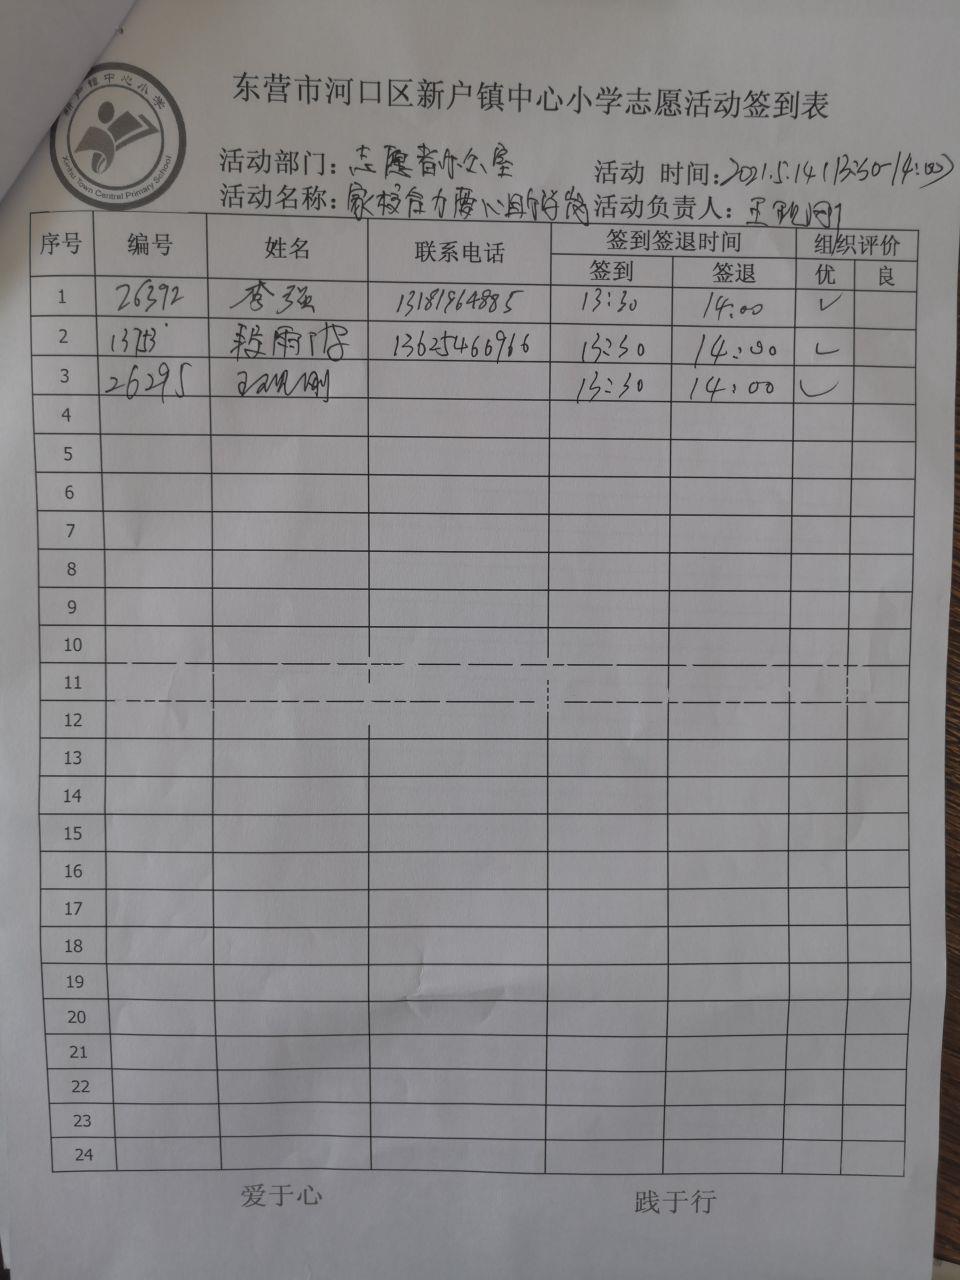 东营市河口区新户镇中心小学志愿活动签到表
新户镇中心小学
Xinhu Town Central Primary School
活动部门：志愿者办公室 活动 时间：2021.5.14（13:30-14:00）
活动名称：家校合力 爱心 活动负责人：王
序号 编号 姓名 联系电话 签到签退时间 组织评价
签到 签退 优 良
1 26392 李强 13181964885 13:30 14:00 ✓
2 13753 段雨 13625466966 13:30 14:00 ✓
3 26295 王 13:30 14:00 ✓
4
5
6
7
8
9
10
11
12
13
14
15
16
17
18
19
20
21
22
23
24
爱于心 践于行